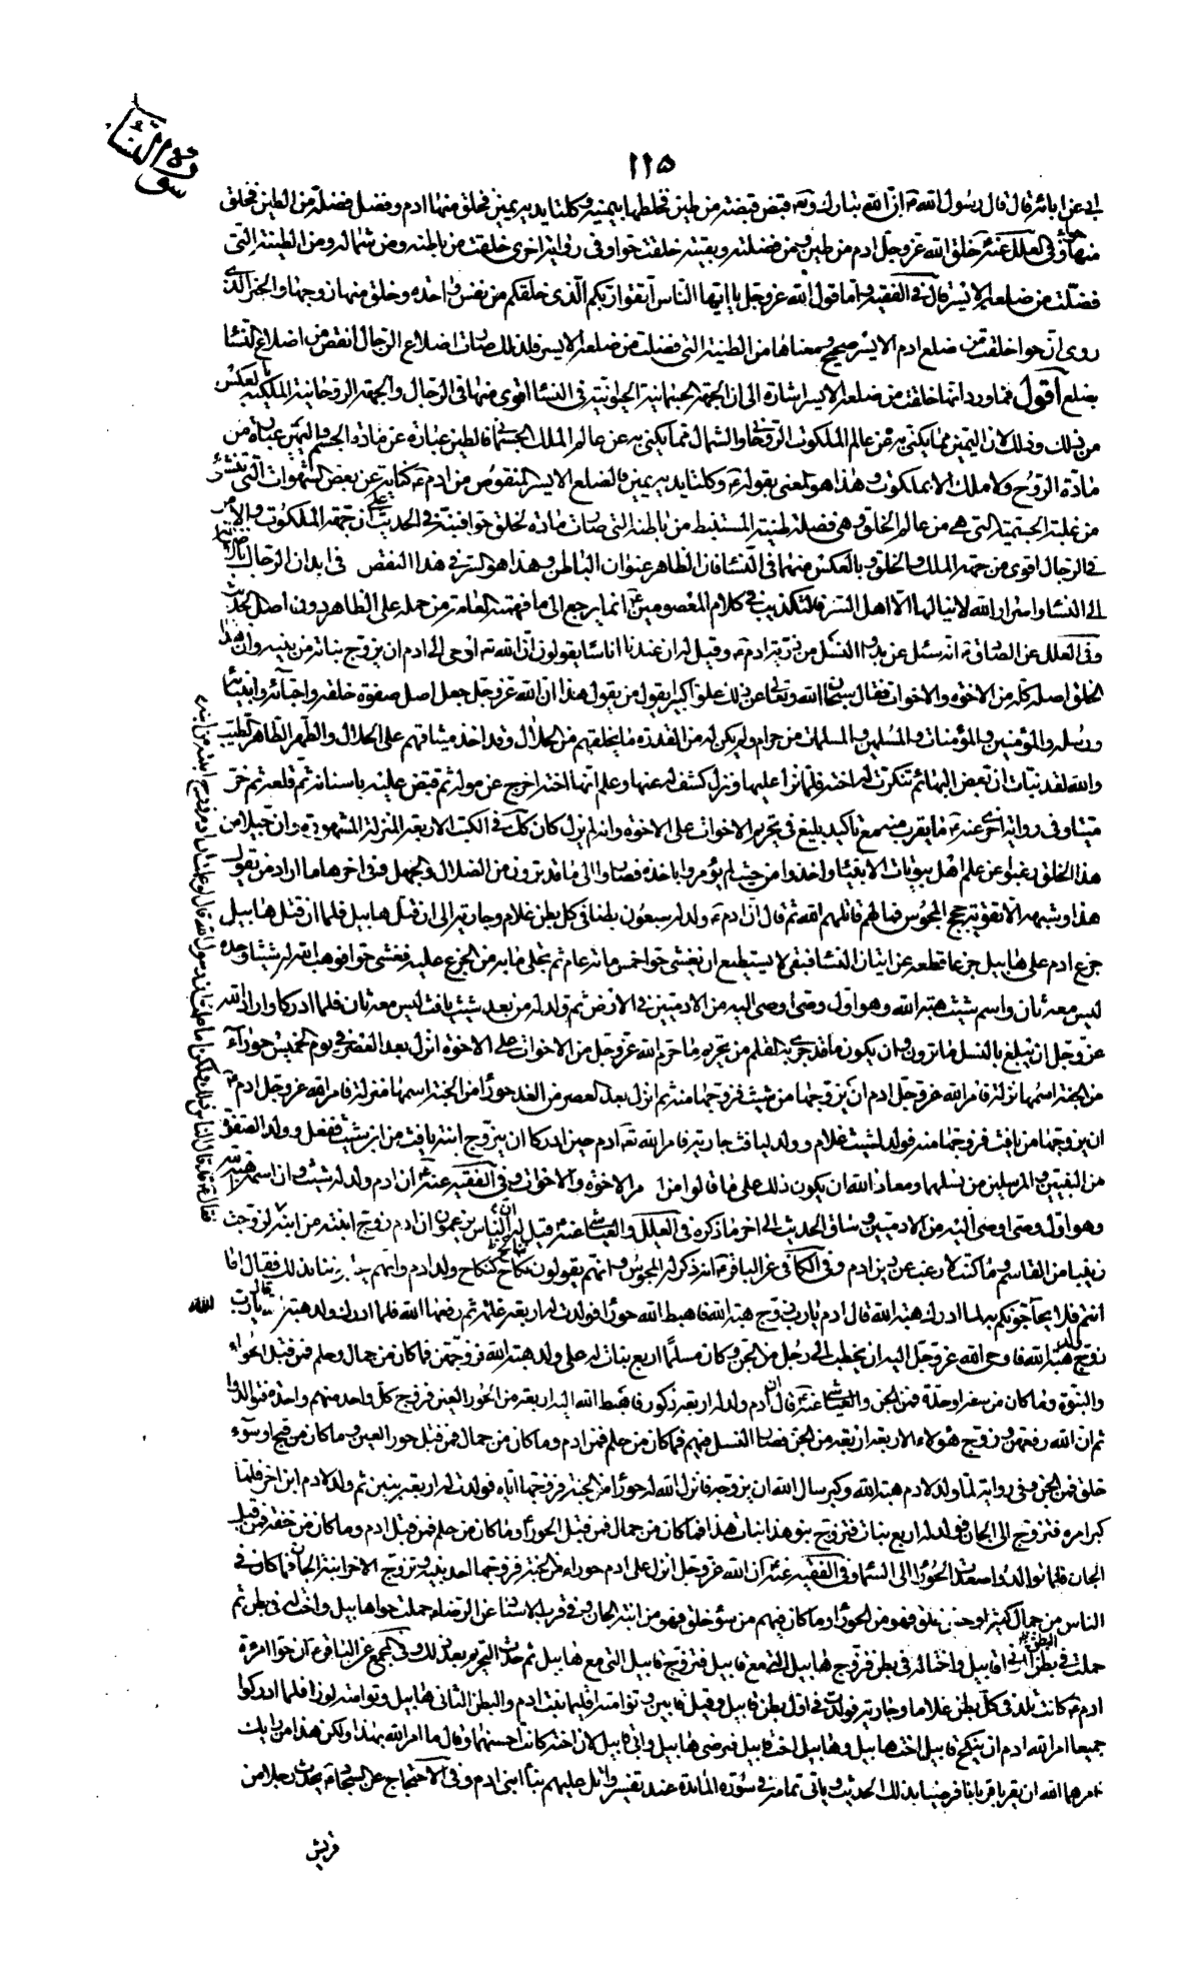 سورة النساء
١١٥
ابي عن ابائه قال قال رسول الله ص ان الله تبارك وتع قبض قبضة من طين فخلطها بيمينه وكلتا يديه يمين فخلق منها ادم وفضل فضلة من الطين فخلق
منها حوا وفي العلل عنه ع خلق الله عز وجل ادم من طين ومن فضلته وبقيته خلقت حوا وفي رواية اخرى خلقت من باطنه ومن شماله ومن الطينة التي
فضلت من ضلعه الايسر قال في الفقيه واما قول الله عز وجل يا ايها الناس اتقوا ربكم الذي خلقكم من نفس واحدة وخلق منها زوجها والخبر الذي
روى ان حوا خلقت من ضلع ادم الايسر صحيح ومعناها من الطينة التي فضلت من ضلعه الايسر فلذلك صارت اضلاع الرجال انقص من اضلاع النساء
بضلع أقول فما ورد انها خلقت من ضلعه الايسر اشارة الى ان الجهة الجسمانية الحيوانية في النساء اقوى منها في الرجال والجهة الروحانية الملكية بالعكس
من ذلك وذلك لان اليمين مما يكنى به عن عالم الملكوت الروحاني والشمال مما يكنى به عن عالم الملك الجسماني فالطين عبارة عن مادة الجسم واليمين عبارة عن
مادة الروح ولا ملك الا بملكوت وهذا هو المعني بقوله ع وكلتا يديه يمين فالضلع الايسر المنقوص من ادم ع كناية عن بعض الشهوات التي تنشؤ
من غلبة الجسمية التي هي من عالم الخلق وهي فضلة طينته المستنبط من باطنه التي صارت مادة لخلق حوا فنبه في الحديث على ان جهة الملكوت والامر
في الرجال اقوى من جهة الملك والخلق وبالعكس منهما في النساء فان الظاهر عنوان الباطن وهذا هو السر في هذا النقص في ابدان الرجال بالاضافة
الى النساء واسرار الله لا ينالها الا اهل السر فالتكذيب في كلام المعصومين ع انما يرجع الى ما فهمته العامة من حمله على الظاهر دون اصل الحديث
وفي العلل عن الصادق ع انه سئل عن بدو النسل من ذرية ادم ع وقيل له ان عندنا اناسا يقولون ان الله تع اوحى الى ادم ان يزوج بناته من بنيه وان هذا
الخلق اصله كله من الاخوة والاخوات فقال سبحان الله وتعالى عن ذلك علوا كبيرا يقول من يقول هذا ان الله عز وجل جعل اصل صفوة خلقه واحبائه وانبيائه
ورسله والمؤمنين والمؤمنات والمسلمين والمسلمات من حرام ولم يكن له من القدرة ما يخلقهم من الحلال وقد اخذ ميثاقهم على الحلال والطهر الطاهر الطيب
والله لقد نبئت ان بعض البهائم تنكرت له اخته فلما نزا عليها ونزل كشف له عنها وعلم انها اخته اخرج عن موله ثم قبض عليه باسنانه ثم قلعه ثم خر
ميتا وفي رواية اخرى عنه ع ما يقرب منه مع تاكيد بليغ في تحريم الاخوات على الاخوة وانه لم يزل كان كك في الكتب الاربعة المنزلة المشهورة وان جيلا من
هذا الخلق رغبوا عن علم اهل بيوتات الانبياء واخذوا من حيث لم يؤمروا باخذه فصاروا الى ما قد ترون من الضلال والجهل وفي اخرها ما اراد من يقول
هذا وشبهه الا تقوية حجج المجوس فما لهم قاتلهم الله ثم قال ان ادم ع ولد له سبعون بطنا في كل بطن غلام وجارية الى ان قتل هابيل فلما ان قتل هابيل
جزع ادم على هابيل جزعا قطعه عن اتيان النساء فبقى لا يستطيع ان يغشى حوا خمس مائة عام ثم تخلى ما به من الجزع عليه فغشى حوا فوهب الله له شيثا وحده
ليس معه ثان واسم شيث هبة الله وهو اول وصي اوصي اليه من الادميين في الارض ثم ولد له من بعد شيث يافث ليس معه ثان فلما ادركا واراد الله
عز وجل ان يبلغ بالنسل ما ترون وان يكون ما قد جرى به القلم من تحريم ما حرم الله عز وجل من الاخوات على الاخوة انزل بعد العصر في يوم الخميس حوراء
من الجنة اسمها نزلة فامر الله عز وجل ادم ان يزوجها من شيث فزوجها منه ثم انزل بعد العصر من الغد حورا من الجنة اسمها منزلة فامر الله عز وجل ادم ع
ان يزوجها من يافث فزوجها منه فولد لشيث غلام وولد ليافث جارية فامر الله تع ادم حين ادركا ان يزوج ابنة يافث من ابن شيث ففعل وولد الصفوة
من النبيين والمرسلين من نسلهما ومعاذ الله ان يكون ذلك على ما قالوا من امر الاخوة والاخوات وفي الفقيه عنه ع ان ادم ولد له شيث وان اسمه هبة الله
وهو اول وصي اوصي اليه من الادميين وساق الحديث الى اخر ما ذكره في العلل والعياشي عنه ع قيل له ان الناس يزعمون ان ادم زوج ابنته من ابنه
زينبا من القاسم وما كنت لارغب عن دين ادم وفي الكافي عن الباقر ع انه ذكر له المجوس وانهم يقولون نكاح كنكاح ولد ادم وانهم يحاجوننا بذلك فقال اما
انتم فلا يحاجونكم به لما ادرك هبة الله قال ادم يا رب زوج هبة الله فاهبط الله حورا فولدت له اربعة غلمة ثم رفعها الله فلما ادرك ولد هبة الله قال يا رب
زوج ولد هبة الله فاوحى الله عز وجل اليه ان يخطب الى رجل من الجن وكان مسلما اربع بنات له على ولد هبة الله فزوجهن فما كان من جمال وحلم فمن قبل الحوراء
والنبوة وما كان من سفه او حدة فمن الجن والعياشي عنه ع قال ان ادم ولد له اربعة ذكور فاهبط الله اليه اربعة من الحور العين فزوج كل واحد منهم واحدة فتوالدوا
ثم ان الله رفعهن وزوج هؤلاء الاربعة اربعة من الجن فصار النسل فيهم فما كان من حلم فمن ادم وما كان من جمال فمن قبل حور العين وما كان من قبح او سوء
خلق فمن الجن وفي رواية لما ولد لادم هبة الله وكبر سال الله ان يزوجه فانزل الله له حورا من الجنة فزوجها اياه فولدت له اربعة بنين ثم ولد لادم ابن اخر فلما
كبر امره فتزوج الى الجان فولد له اربع بنات فتزوج بنو هذا بنات هذا فما كان من جمال فمن قبل الحورا وما كان من حلم فمن قبل ادم وما كان من خفة فمن قبل
الجان فلما توالدوا صعدت الحورا الى السماء وفي الفقيه عنه ع ان الله عز وجل انزل على ادم حوراء من الجنة فزوجها احد ابنيه وتزوج الاخر ابنة الجان فما كان في
الناس من جمال كثير او حسن خلق فهو من الحورا وما كان فيهم من سوء خلق فهو من ابنة الجان وفي قرب الاسناد عن الرضا ع حملت حوا هابيل واختا له في بطن ثم
حملت في البطن الثاني قابيل واختا له في بطن فزوج هابيل التي مع قابيل فتزوج قابيل التي مع هابيل ثم حدث التحريم بعد ذلك وفي المجمع عن الباقر ع ان حوا امرءة
ادم ع كانت تلد في كل بطن غلاما وجارية فولدت في اول بطن قابيل وقيل قابين وتوامته اقليما بنت ادم والبطن الثاني هابيل وتوامته لوزا فلما ادركوا
جميعا امر الله ادم ان ينكح قابيل اخت هابيل وهابيل اخت قابيل فرضى هابيل وابى قابيل لان اخته كانت احسنهما وقال ما امر الله بهذا ولكن هذا من رايك
فامرهما الله ان يقربا قربانا فرضيا بذلك الحديث وياتي تمامه في سورة المائدة عند تفسير واتل عليهم نبا ابني ادم وفي الاحتجاج عن السجاد ع يحدث رجلا من
قريش